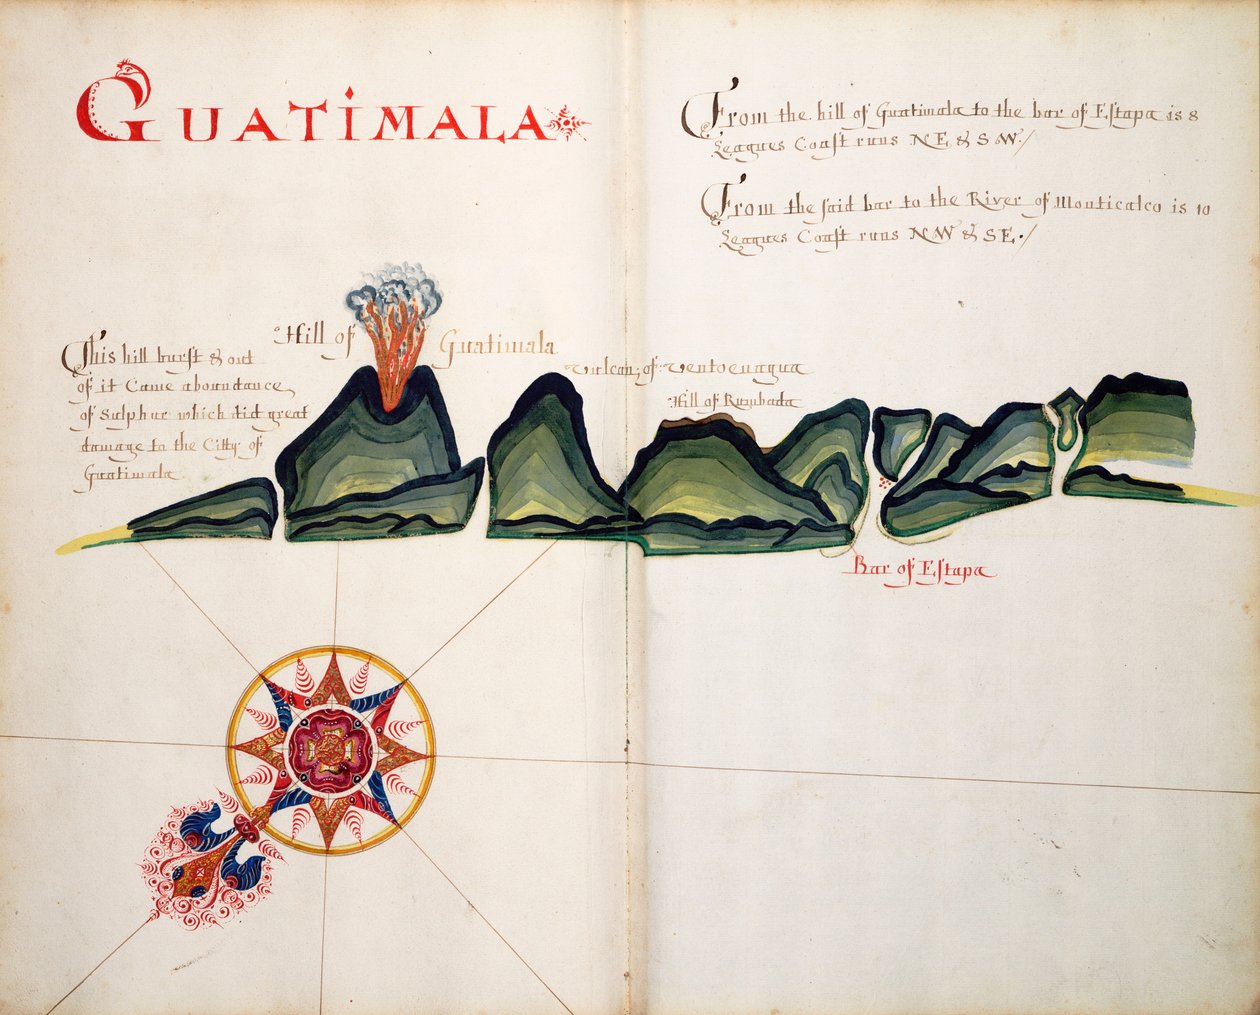 GUATIMALA
From the hill of Guatimala to the bar of Estapa is 8
Leagues Coast runs NE & SW./
From the said bar to the River of Monticalco is 10
Leagues Coast runs NW & SE./
Hill of Guatimala
This hill burst & out
of it Came aboundance
of Sulphur which did great
damage to the Citty of
Guatimala
Vulcan; of Ventoenagua
Hill of Rumbada
Bar of Estapa